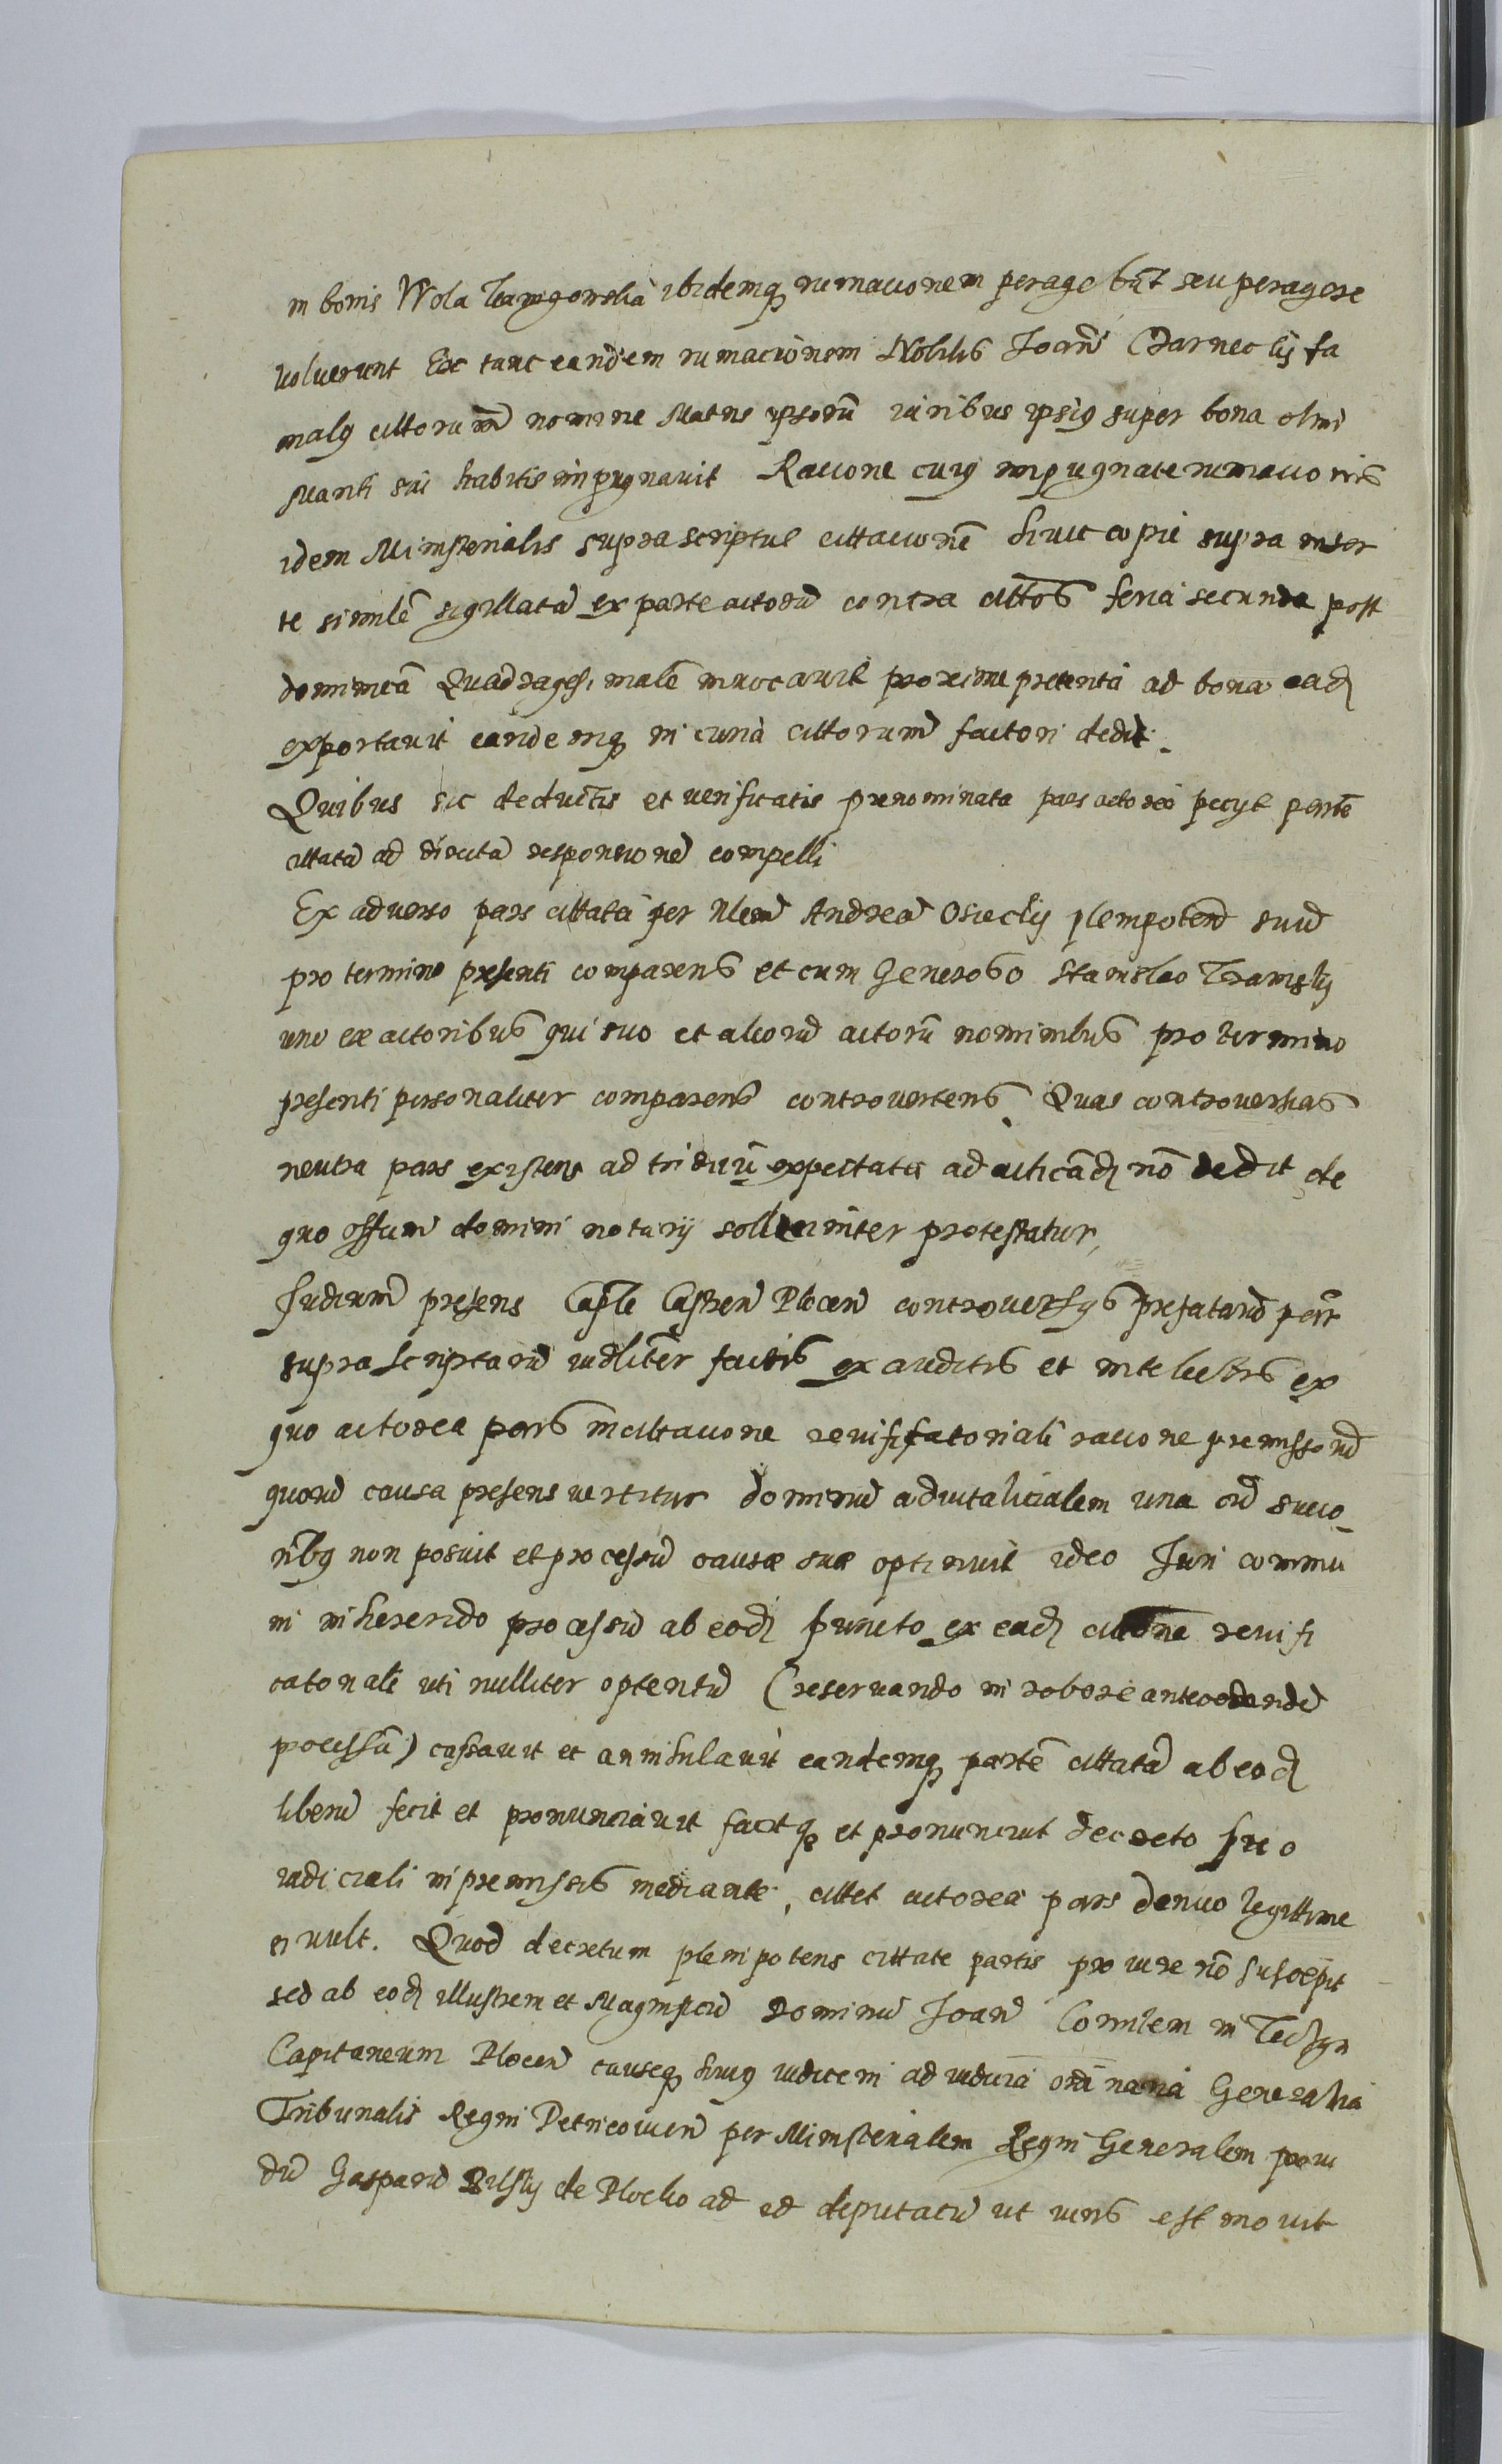 in bonis Wola ibidemq rumacionem peragebāt seu peragere
voluerunt Ex tunc eandem rumacionem Nobilis Joan Czarneckij fa
malq cittorum nomine Matris ipsorū iuribus ipsiq super bona olim
Mariti sui habitis impugnavit Racione cuiq impugnate rumacionis
idem Ministerialis supra scriptus cittacionē huic copie supra inser
te similē sigillatā ex parte actorū contra cittos feria secunda post
dominicā Quadragesimalē invocavit proxime preterita ad bona ead
exportavit eandemq in curia cittorum factori dedit.
Quibus sic deductis et verificatis prenominata pars actorea peciyt partē
cittatā ad directā responsionē compelli
Ex adverso pars cittata per Andreā Osieckij plenipotenē suū
pro termino presenti comparens et cum Generoso Stanislao
uno ex actoribus qui suo et aliorū actorū nominibus pro termino
presenti personaliter comparens controvertens. Quas controversias
neutra pars existens ad triduū expectata ad acticād nō dedit de
quo offium domini notarij sollenniter protestatur,
Judicium presens Caple Castren Plocen controversijs prefatarū part
supra scriptarū iudliter factis ex auditis et intelectis ex
quo actorea pars in cittacione revifificatoriali racione premissorū
quorū causa presens vertitur dominū advitalicialem una cū succo-
ribq non posuit et processū causæ suæ optinuit ideo Juri commu
ni inherendo processū ab eod puncto ex ead revifi
catoriali uti nulliter optentū (reservando in robore
pocessū) cassavit et annihulavit eandemq partē cittatā ab eod
liberū fecit et pronunciavit facitq et pronunciat decreto suo
iudiciali in premissis mediante, cittet actorea pars denuo legittime
si vult. Quod decretum plenipotens cittate partis pro iure nō suscepit
sed ab eod illustrem et Magnificū dominū Joan Comitem in Teczyn
Capitaneum Plocen causeq huiq iudicem ad iudicia ordinaria Generalia
Tribunalis Regni Petricovien per Ministerialem Regni Generalem provi
dū Gasparū de Plocko ad id deputatū ut iuris est movit